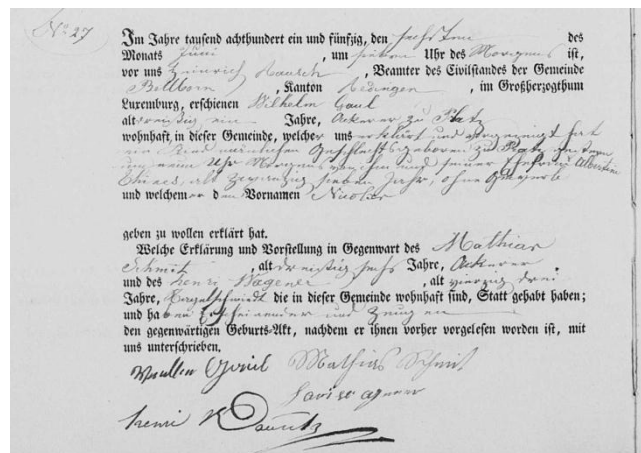 No 27
Im Jahre tausend achthundert ein und fünfzig, den sechsten des
Monats Juni, um sieben Uhr des Morgens ist,
vor uns Heinrich Rausch, Beamter des Civilstandes der Gemeinde
Bettborn, Kanton Redingen, im Großherzogthum
Luxemburg, erschienen Wilhelm Gaul
alt dreißig ein Jahre, Ackerer zu Platz
wohnhaft, in dieser Gemeinde, welcher uns erklärt und vorgezeigt hat
ein Kind männlichen Geschlechts geboren zu Platz
um neun Uhr Morgens von ihm und seiner Ehefrau Albertine
alt zwanzig sieben Jahr, ohne Gewerb
und welchem er den Vornamen Nicolas
geben zu wollen erklärt hat.
Welche Erklärung und Vorstellung in Gegenwart des Mathias
Schmit, alt dreißig sechs Jahre, Ackerer
und des Henri Wagener, alt vierzig drei
Jahre, die in dieser Gemeinde wohnhaft sind, Statt gehabt haben;
und haben Erscheinender und Zeugen
den gegenwärtigen Geburts-Akt, nachdem er ihnen vorher vorgelesen worden ist, mit
uns unterschrieben.
Mathias Schmit
henri